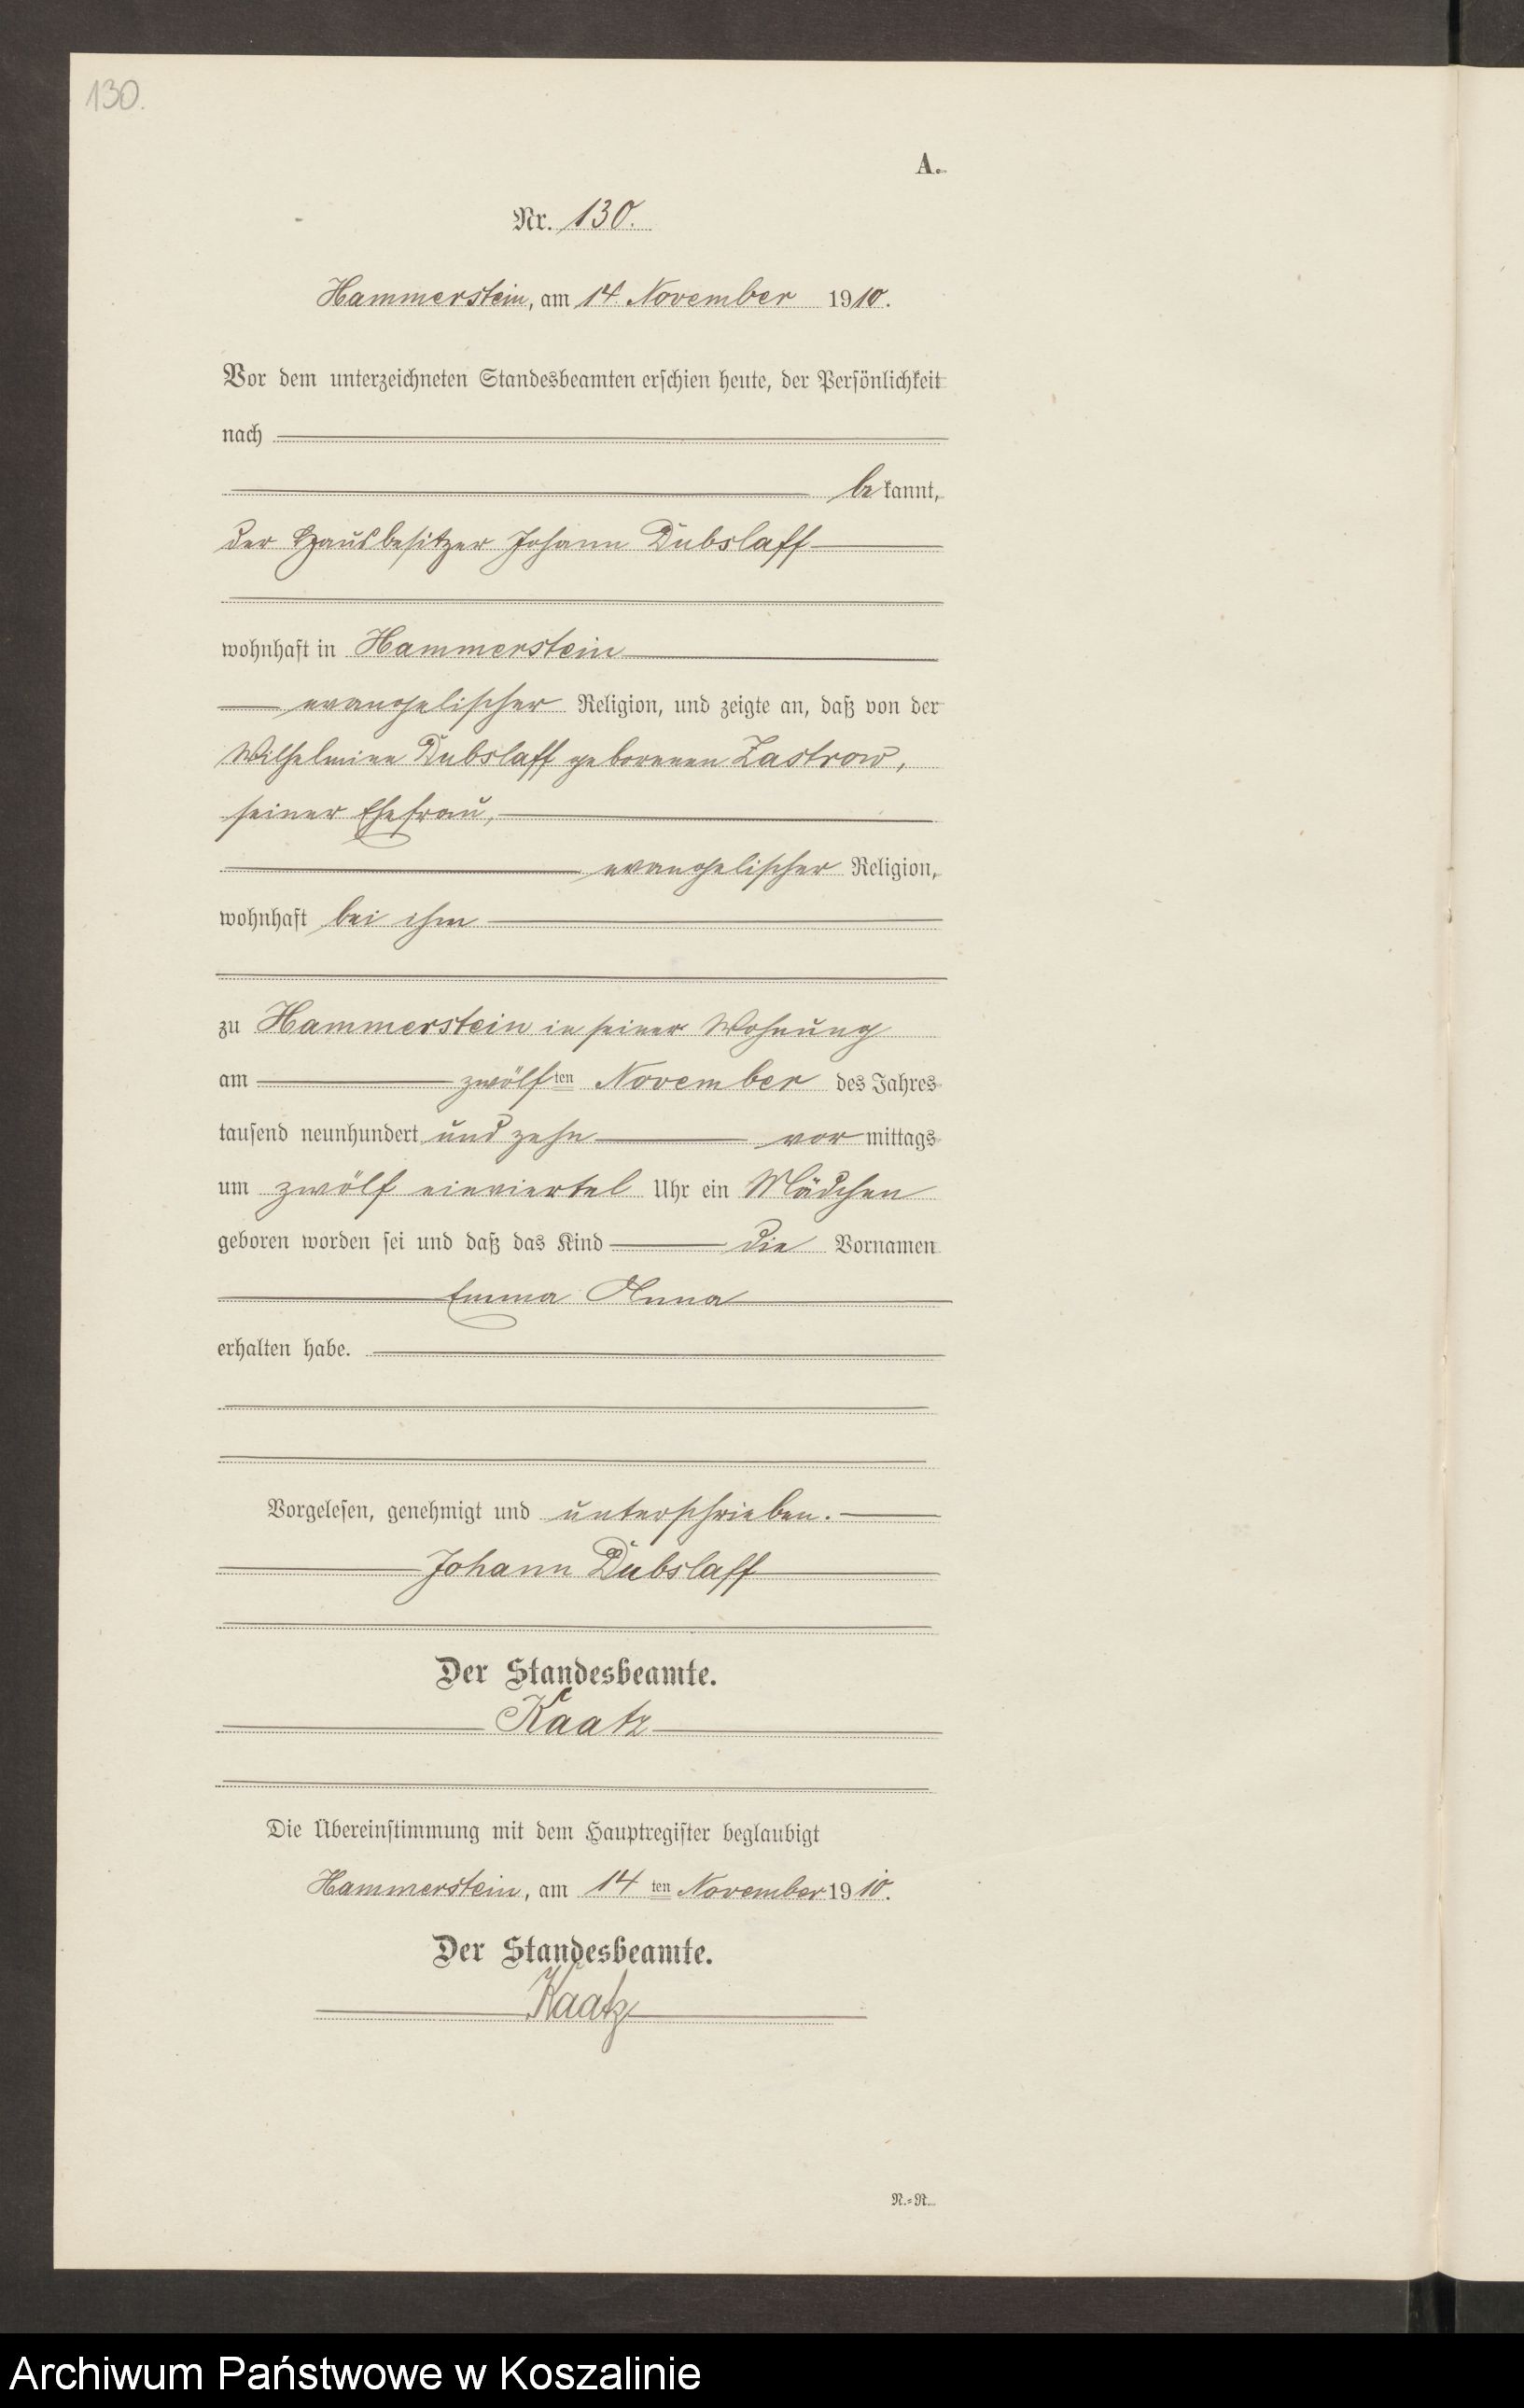 130.
A.
Nr. 130.
Hammerstein, am 14. November 1910.
Vor dem unterzeichneten Standesbeamten erschien heute, der Persönlichkeit
nach
bekannt,
der Hausbesitzer Johann Dubslaff
wohnhaft in Hammerstein
evangelischer Religion, und zeigte an, daß von der
Wilhelmine Dubslaff geborenen Zastrow,
seiner Ehefrau,
evangelischer Religion,
wohnhaft bei ihm
zu Hammerstein in seiner Wohnung
am zwölften November des Jahres
tausend neunhundert und zehn vormittags
um zwölf einviertel Uhr ein Mädchen
geboren worden sei und daß das Kind die Vornamen
Emma Anna
erhalten habe.
Vorgelesen, genehmigt und unterschrieben.
Johann Dubslaff
Der Standesbeamte.
Kaatz
Die Übereinstimmung mit dem Hauptregister beglaubigt
Hammerstein, am 14ten November 1910.
Der Standesbeamte.
Kaatz
N.=R.
Archiwum Państwowe w Koszalinie